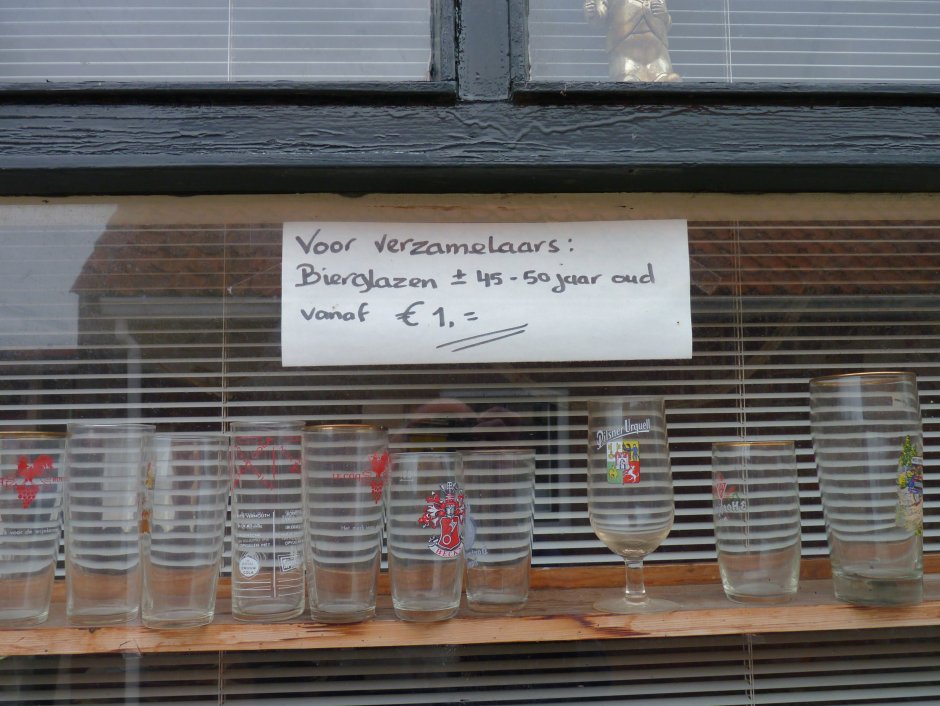 Voor verzamelaars:
Bierglazen ± 45-50 jaar oud
vanaf € 1,=
Pilsner Urquell